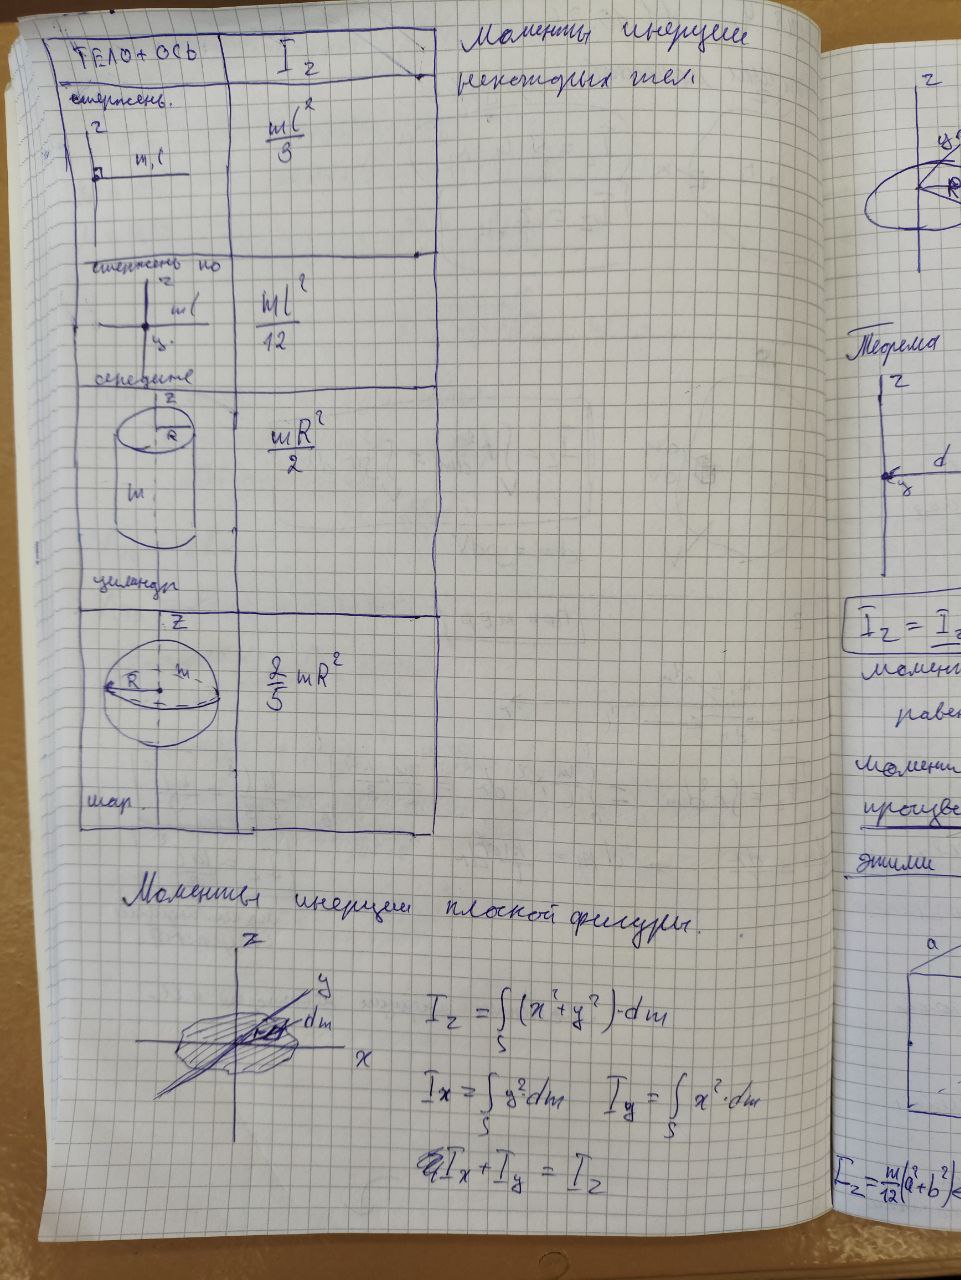 Моменты инерции
некоторых тел.
ТЕЛО + ОСЬ
I_z
стержень.
z
m, l
ml²/3
стержень по
z
ml
ц.
середине
ml²/12
z
R
m
цилиндр
mR²/2
z
R
m
шар.
2/5 mR²
Моменты инерции плоской фигуры.
z
y
dm
x
I_z = ∫_S (x² + y²)·dm
I_x = ∫_S y²·dm I_y = ∫_S x²·dm
I_x + I_y = I_z
z
R
Теорема
z
d
ц
I_z = I_z
момент
равен
произве
этими
a
I_z = m/12 (a² + b²)